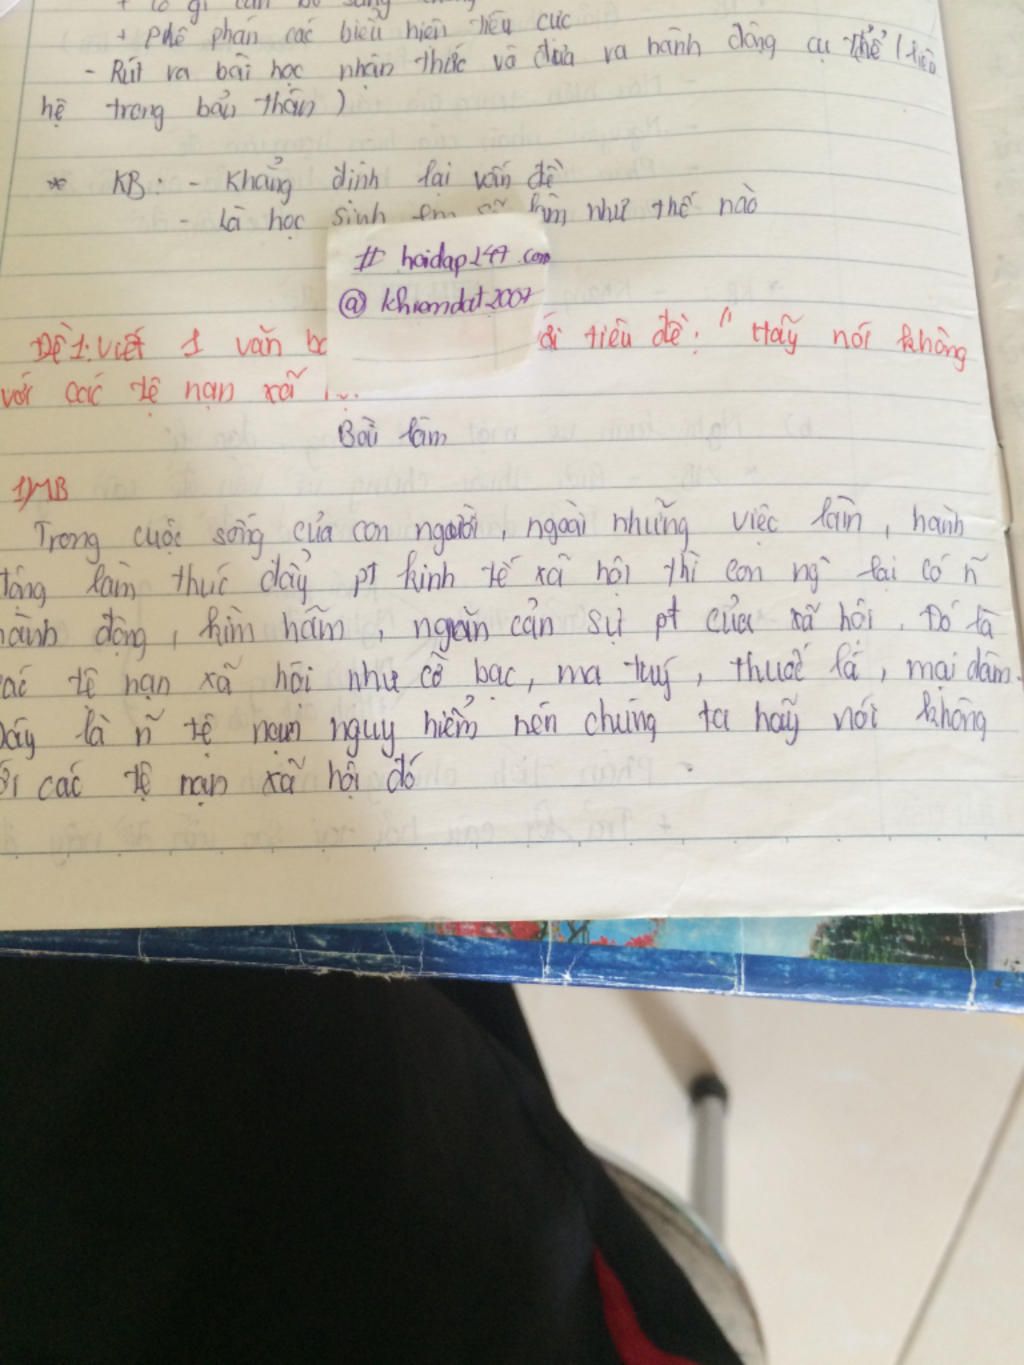 + có gì cần bổ sung
+ phê phán các biểu hiện tiêu cực
- Rút ra bài học nhận thức và đưa ra hành động cụ thể (liên
hệ trong bản thân)
* KB: - Khẳng định lại vấn đề
- Là học sinh em sẽ làm như thế nào
# hoidap247.com
@ khiemdat2007
Đề 1: Viết 1 văn tiêu đề: "Hãy nói không
với các tệ nạn xã
Bài làm
1) MB
Trong cuộc sống của con người, ngoài những việc làm, hành
động làm thúc đẩy pt kinh tế xã hội thì con ng lại có ñ
hành động, kìm hãm, ngăn cản sự pt của xã hội. Đó là
các tệ nạn xã hội như cờ bạc, ma tuý, thuốc lá, mại dâm.
Đây là ñ tệ nạn nguy hiểm nên chúng ta hãy nói không
với các tệ nạn xã hội đó